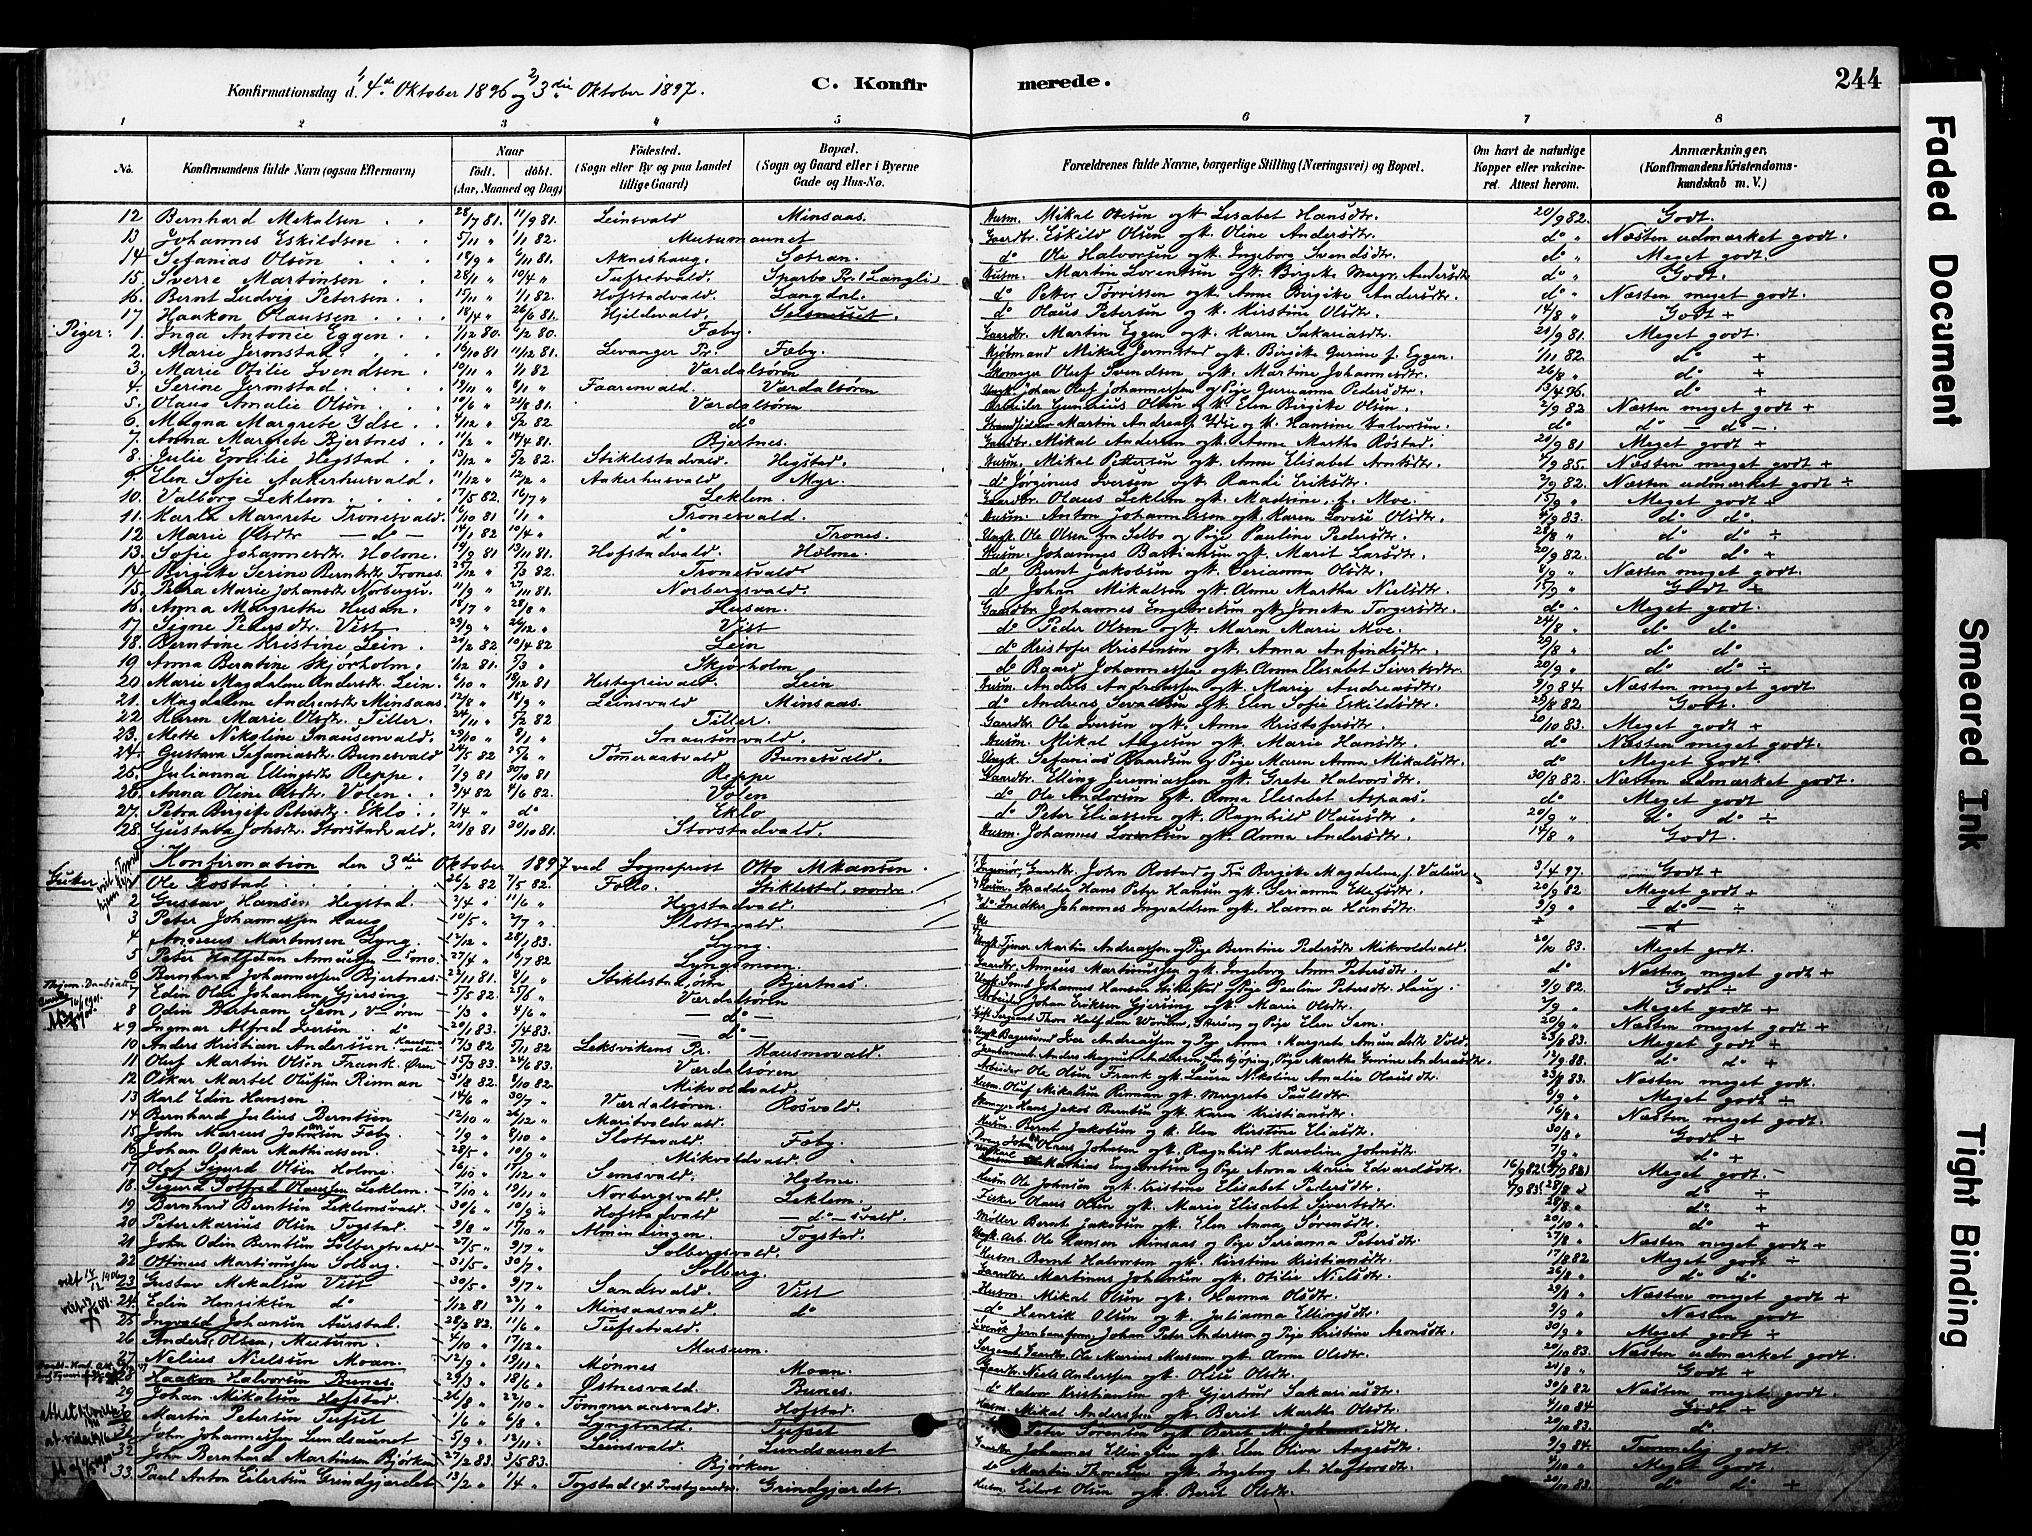 Konfirmationsdag d. 1/ 4de Oktober 1896 og 2/ 3die Oktober 1897.
C. Konfir
merede.
244
1 2 3 4 5 6 7 8
No.
Konfirmandens fulde Navn (ogsaa Efternavn)
Naar
Födt. döbt.
(Aar, Maaned og Dag)
Födested.
(Sogn eller By og paa Landet tillige Gaard)
Bopæl.
(Sogn og Gaard eller i Byerne Gade og Hus-No.
Forældrenes fulde Navne, borgerlige Stilling (Næringsvei) og Bopæl.
Om havt de naturlige Kopper eller vakcineret. Attest herom.
Anmærkninger.
(Konfirmandens Kristendomskundskab m. V.)
12 Bernhard Mikalsen 28/7 81. 11/9 81. Leinsvald Minsaas. Husm. Mikal Olsen og k. Lisabet Hansdtr. 20/9 82. Godt.
13 Johannes Eskildsen 5/11 " 1/1 82. Musumaunet Gaardbr. Eskild Olsen og k. Oline Andersdtr. do " Næsten udmærket godt.
14 Sefanias Olsen 18/9 " 6/11 81. Akneshaug. Sætran. do Ole Halvorsen og k. Ingeborg Svendsdtr. do " Meget godt.
15. Sverre Martinsen 28/1 " 10/4 " Tufsetvald. Sparbo Pr. (Langli) Husm. Martin Lorentsen og k. Birgitte Margr. Andersdtr. do " Godt.
16. Bernt Ludvig Petersen 15/11 " 1/1 82. Hofstadvald. Langdal. do Petter Tørrissen og k. Anne Birgitte Andersdtr. do " Næsten meget godt.
17 Haakon Olaussen 18/4 " 26/6 81. Hjeldevald. do Olaus Petersen og k. Kirstine Olsdtr. 14/8 " Godt +
Piger:
1. Inga Antonie Eggen 1/12 80. 6/2 80. Fæby. Gaardbr. Martin Eggen og k. Karen Sakariasdtr. 20/9 81. Meget godt.
2. Marie Jermstad 16/10 81 11/12 81. Levanger Pr. Fæby. Kjøbmand Mikal Jermstad og k. Birgitte Gurine f. Eggen. 1/11 82. do +
3. Marie Otilie Svendsen 10/11 " 1/1 82 Værdalsøren Skomager Oluf Svendsen og k. Martine Johannesdtr. 26/8 " do +
4. Serine Jermstad 13/11 " 8/1 " Faarenvald. Værdalsøren Ungk. Johan Olaf Johannessen og Pige Gurianna Pedersdtr. 13/4 96. do +
5. Olaus Amalie Olsen 10/6 " 21/8 81. Værdalsøren Arbeider Gunerius Olsen og k. Elen Birgitte Olsen. 2/9 82 Næsten meget godt +
6. Magna Margrete Ydse 4/12 " 5/2 82. do Martin Andreas Ydse og k. Hansine Halvorsen. do do — do —
7. Anna Margrete Bjertnes 11/2 " 14/4 81. Bjertnes. Gaardbr. Mikal Andersen og k. Anne Martha Røstad. 20/9 81 Meget godt +
8. Julie Emilie Hegstad 13/12 " 5/2 82. Stiklestadvald. Hegstad. Husm. Mikal Pettersen og k. Anne Elisabet Arntsdtr. 4/9 85. Næsten meget godt +
9. Elen Sofie Aakerhusvald. 11/12 " 12/2 " Aakerhusvald. Myr. do Jørginus Iversen og k. Randi Eriksdtr. 7/9 82. Næsten udmærket godt ÷
10. Valborg Leklem 17/5 82. 16/7 " Leklem. Gaardbr. Olaus Leklem og k. Madsine f. Moe. 15/9 " Meget godt +
11. Karla Margrete Tronesvald. 16/10 81 1/1 " Tronesvald. Husm. Anton Johannessen og k. Karen Lovise Olsdtr. 4/9 83. do do.
12 Marie Olsdtr — do — 14/1 82 10/4 " do Trones. Ungk. Ole Olsen fra Selbo og Pige Pauline Pedersdtr. 28/8 " do do ÷
13. Sofie Johannesdtr. Holme. 14/9 81 13/11 81. Hofstadvald. Holme. Husm. Johannes Bastiansen og k. Marit Larsdtr. 20/9 82. do do +
14 Birgitte Serine Berntsdtr. Trones. 25/12 " 5/3 82. Tronesvald. do Bernt Jakobsen og k. Serianna Olsdtr. 8/9 " Næsten meget godt.
15. Petra Marie Johansdtr. Norbergsv. 11/9 " 27/11 81. Norbergsvald. do Johan Mikalsen og k. Anne Martha Nielsdtr. 15/9 " Godt +
16. Anna Margrethe Husan. 18/7 " 28/8 " Husan. Gaardbr. Johannes Engebretsen og k. Joneta Torgersdtr. do " Meget godt.
17 Signe Pedersdtr. Vist 29/9 " 26/12 " Vist do Peder Olsen og k. Maren Marie Moe. 24/8 " do do
18. Berntine Kristine Lein. 21/2 82 10/4 82 Lein do Kristofer Kristensen og k. Anna Anfindsdtr. 29/8 " do do
19 Anna Berntine Skjørholm. 1/12 81. 5/3 " Skjørholm do Baard Johannessen og k. Anna Elisabet Sivertsdtr. 20/9 " do do ÷
20 Marie Magdalene Andersdtr. Lein. 6/10 " 18/12 81 Hestegreivald. Lein Husm. Anders Andreassen og k. Marie Andreasdtr. 9/9 84. Næsten meget godt
21. Magdalene Andreasdtr. Minsaas 12/8 " 18/9 " Leinsvald Minsaas. do Andreas Sevaldsen og k. Elen Sofie Eskildsdtr. 29/8 82 Godt.
22 Karen Marie Olsdtr. Tiller. 24/11 " 5/2 82 Tiller. Gaardbr. Ole Iversen og k. Anne Kristofersdtr. 20/10 83. Meget godt +
23. Mette Nikoline Snausenvald. 29/10 " 8/1 " Snausenvald. Husm. Mikal Aagesen og k. Marie Hansdtr. do Næsten meget godt.
24. Gustava Sefaniasdtr. Bunesvald 24/5 82 25/6 " Tømeraasvald Bunesvald. Ungk. Sefanias Baardsen og Pige Maren Anna Mikalsdtr. do Meget godt.
25. Julianna Ellingsdtr. Reppe. 7/9 81 30/10 81 Reppe Gaardbr. Elling Jeremiassen og k. Grete Halvorsdtr. 30/8 82. Næsten udmærket godt.
26. Anna Oline Olsdtr. Volen 9/4 82 4/6 82 Volen do Ole Andorsen og k. Anna Elisabet Aspaas. do Meget godt
27. Petra Bergitte Petersdtr. Eklo 7/4 " do Eklo do Peter Eliassen og k. Ragnhild Olausdtr. 20/9 " do do ÷
28. Gustava Johsdtr. Storstadvald. 20/8 81 30/10 81. Storstadvald. Husm. Johannes Lorentsen og k. Anna Andersdtr. 14/8 " Godt.
Konfirmation den 3die Oktober 1897 ved Sogneprest Otto M. Kausen
Gutter
1 Ole Rostad 26/2 82 7/5 82. Follo. Stiklestad nordre. Gaardbr. John Rostad og Fru Bergitte Magdalene f. Valeur 3/4 97. Godt +
2 Gustav Hansen Hegstad. 3/4 " 11/6 " Hegstadvald. Husm. Skrædder Hans Peter Hansen og k. Serianna Ellefsdtr. 20/9 82 Meget godt +
3 Peter Johannessen Haug 10/5 " 2/7 " Slottsvald. do Snedker Johannes Ingvaldsen og k. Hanna Hansdtr. 9/9 " — do — ÷
4 Anneus Martinsen Lyng 12/12 " 28/1 83. Lyng.
5 Peter Halfdan Anneusen 27/4 " 16/7 82 Lyngsmoen. Ungk. Tjener Martin Andreassen og Pige Berntine Pedersdtr. Mikvoldvald. 20/10 83. Meget godt.
6 Bernhard Johannessen Bjertnes. 22/11 81. 8/1 " Stiklestad østre Bjertnes Gaardbr. Anneus Martinussen og k. Ingeborg Anna Petersdtr. do Næsten meget godt +
7 Edin Olai Johansen Gjersing 5/5 82. 25/6 " Værdalsøren Ungk. Johannes Hansen Stiklestad og Pige Pauline Petersdtr. Haug. 9/9 82. Godt ÷
8 Odin Bertram Sem, V-øren 1/3 " 4/6 " — do — Arbeider Johan Eriksen Gjersing og k. Marie Olsdtr. 2/9 " Meget godt +
+ 9 Ingmar Alfred Iversen. do 20/1 83. 1/4 83. — do — Gift Sergeant Thore Halfdan og Pige Elen Sem. 20/9 " Næsten meget godt +
10 Anders Kristian Andersen 17/3 82 5/11 82 Leksvikens Pr. Kausmovald. Ungk. Iver Andreassen og Pige Anna Margrete Amundsdtr. Vold 23/8 83. Meget godt +
11 Oluf Martin Olsen Frank. Øren 15/3 83. 24/6 83. Værdalsøren Anders Magnus Andersen og Pige Marthe Andreasdtr. 12/9 88. do do +
12 Oskar Martel Olufsen Rinnan 31/8 82. 8/10 82 Mikvoldvald Arbeider Ole Olsen Frank og k. Laura Nikoline Amalie Olausdtr. 23/8 83. Næsten meget godt.
13 Karl Edin Hansen. 14/6 " 30/7 " Værdalsøren. Rosvald. Husm. Oluf Mikalsen Rinnan og k. Margrete Paulsdtr. 6/9 " Meget godt +
14 Bernhard Julius Berntsen 12/10 " 26/12 " Maritvoldvald. Hans Jakob Berntsen og k. Karen Kristiansdtr. 16/8 " Næsten meget godt.
15 John Marius Johnsen Fæby. 1/9 " 8/10 " Slottsvald. Fæby. Husm. Bernt Jakobsen og k. Elen Kirstine Eliasdtr. 30/8 " Godt +
16 Johan Oskar Mathiassen 28/5 " 10/9 " Mikvoldvald. John Olaus Johnsen og k. Ragnhild Karoline Johnsdtr. 7/9 " do +
17 Olaf Sigurd Olsen Holme. 16/10 " 17/12 " Semsvald. Holme. Mathias Engebretsen og Pige Anna Maria Edvardsdtr. 16/9 82 Meget godt —
18. Sigurd Gotfred Olaussen Leklem. 7/10 " 19/11 " Norbergsvald. Leklem. Husm. Ole Johnsen og k. Kristine Elisabet Pedersdtr. 28/8 " do ÷
19 Bernhard Berntsen Leklemsvald. 30/6 " 10/9 " Hofstadvald — do — svald. Fisker Olaus Olsen og k. Marie Elisabet Sivertsdtr. 28/8 " do +
20 Peter Marius Olsen Togstad. 9/8 " 15/10 " Almenningen. Togstad. Møller Bernt Jakobsen og k. Elen Anna Sørensdtr. 20/10 " do +
21 John Odin Berntsen Solbergsvald 27/5 " 9/7 " Solbergsvald. Ungk. Arb. Ole Hansen Minsaas og Pige Serianna Petersdtr. 27/8 " Næsten meget godt +
22 Ottinus Martinussen Solberg. 31/5 " 30/7 " Solberg. Husm. Bernt Halvorsen og k. Kirstine Kristiansdtr. 17/8 82 Meget godt ÷
23 Gustav Mikalsen Vist 30/5 " 9/7 " Sandsvald. Vist Gaardbr. Martinus Johansen og k. Otilie Nielsdtr. 26/8 " do do
24. Edin Henriksen do 1/12 81 22/1 " Minsaasvald. do Husm. Mikal Olsen og k. Hanna Olsdtr. 29/8 " Næsten meget godt +
25 Ingvald Johansen Aurstad. 28/2 82. 11/6 " Tufsetvald. do Henrik Olsen og k. Julianna Ellingsdtr. 9/9 " Næsten godt
26 Anders Olsen, Musum. 4/10 " 17/12 " Musum. Johan Peter Andersson og Pige Kristine Aronsdtr. 30/9 " Meget godt ÷
27 Nelius Nielssen Moan. 12/9 " 19/11 " Mønnes Moan. Sergeant Gaardbr. Ole Marius Musum og k. Anne Olsdtr. 20/10 83. Næsten udmærket godt.
28 Haakon Halvorsen Bunes. 29/3 " 18/6 " Østnesvald. Bunes. Gaardbr. Niels Anderssen og k. Olie Olsdtr. 21/8 " Godt +
29 Johan Mikalsen Hofstad. 26/8 " 22/10 " Tømmeraasvald. Hofstad. do Halvor Kristiansen og k. Gjertrud Sakariasdtr. 30/8 82 Næsten meget godt.
Martin Petersen Tufset 1/6 " 6/8 " Lyngsvald. Tufset Husm. Mikal Anderssen og k. Berit Marta Olsdtr. 4/10 84 Godt +
31 John Johannessen Lundsaunet 5/9 " 12/11 " Leinsvald. Lundsaunet Peter Sørensen og k. Berit M. Johannesdtr. 20/10 83. do
32 John Bernhard Martinsen Bjørken 27/2 83 3/5 83. Bjørken Gaardbr. Johannes Ellingsen og k. Elen Oliva Aagesdtr. 9/9 84. Temmelig godt
33. Paul Anton Eilertsen Grindgjerdet 13/2 " 1/4 " Togstad Grindgjerdet. do Martin Thoresen og k. Ingeborg A. Haftorsdtr. 4/10 " Meget godt.
Husm. Eilert Olsen og k. Berit Olsdtr. 20/10 83. do do +
Faded Document
Smeared Ink
Tight Binding